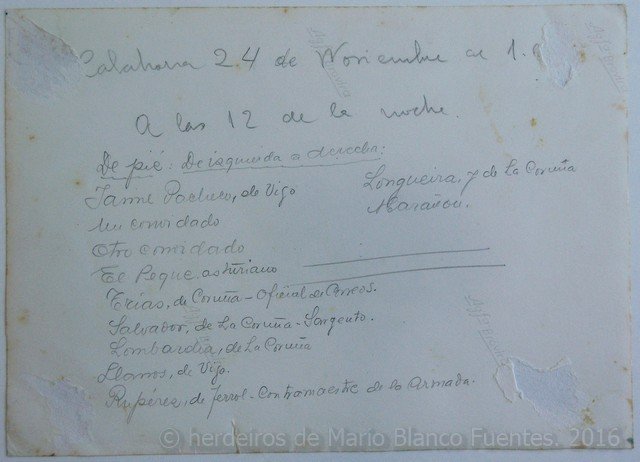 Calahorra 24 de Noviembre de 1.9
A las 12 de la noche.
De pié: De izquierda a derecha:
Jaime Pacheco, de Vigo
Un convidado
Otro convidado
El Peque, asturiano
Frias, de Coruña - Oficial de Correos.
Salvador, de La Coruña - Sargento.
Lombardía, de La Coruña
Llanos, de Vigo.
Ruperez, de Ferrol - Contramaestre de la Armada.
Longueira, y de La Coruña
Marañon.
© herdeiros de Mario Blanco Fuentes. 2016